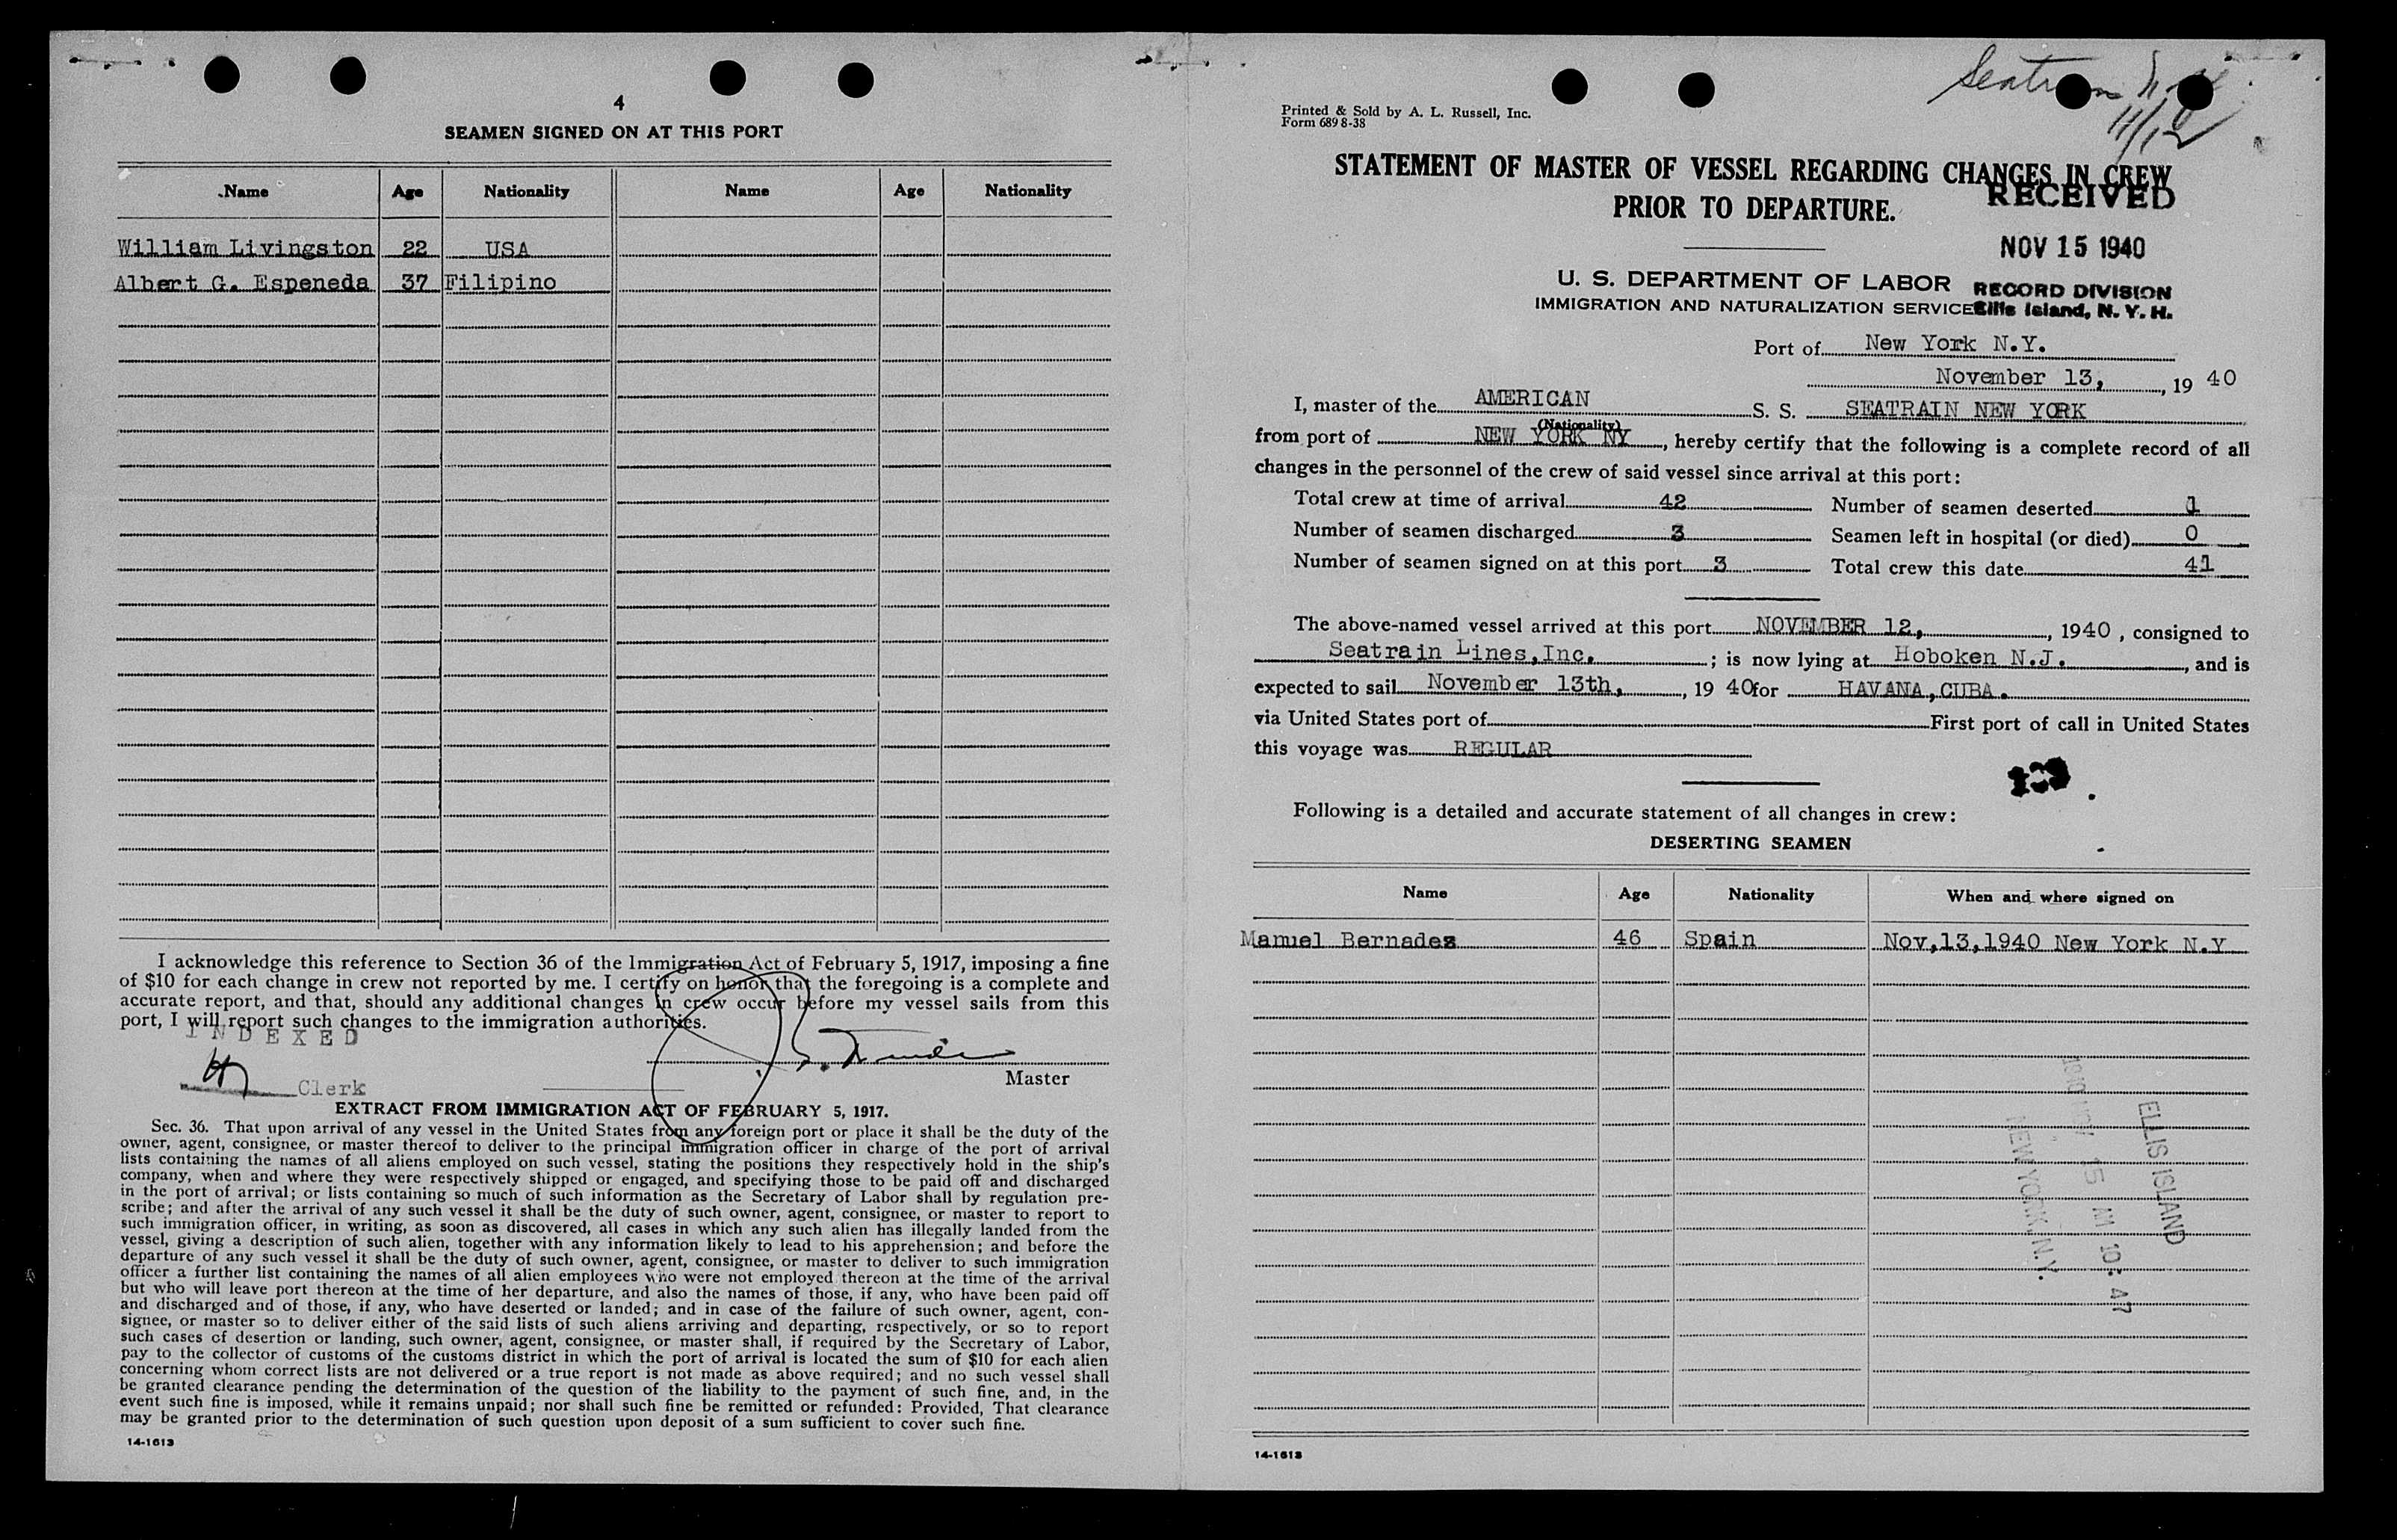 4
SEAMEN SIGNED ON AT THIS PORT
Name Age Nationality Name Age Nationality
William Livingston 22 USA
Albert G. Espeneda 37 Filipino
I acknowledge this reference to Section 36 of the Immigration Act of February 5, 1917, imposing a fine
of $10 for each change in crew not reported by me. I certify on honor that the foregoing is a complete and
accurate report, and that, should any additional changes in crew occur before my vessel sails from this
port, I will report such changes to the immigration authorities.
INDEXED
Clerk
Master
EXTRACT FROM IMMIGRATION ACT OF FEBRUARY 5, 1917.
Sec. 36. That upon arrival of any vessel in the United States from any foreign port or place it shall be the duty of the
owner, agent, consignee, or master thereof to deliver to the principal immigration officer in charge of the port of arrival
lists containing the names of all aliens employed on such vessel, stating the positions they respectively hold in the ship's
company, when and where they were respectively shipped or engaged, and specifying those to be paid off and discharged
in the port of arrival; or lists containing so much of such information as the Secretary of Labor shall by regulation pre-
scribe; and after the arrival of any such vessel it shall be the duty of such owner, agent, consignee, or master to report to
such immigration officer, in writing, as soon as discovered, all cases in which any such alien has illegally landed from the
vessel, giving a description of such alien, together with any information likely to lead to his apprehension; and before the
departure of any such vessel it shall be the duty of such owner, agent, consignee, or master to deliver to such immigration
officer a further list containing the names of all alien employees who were not employed thereon at the time of the arrival
but who will leave port thereon at the time of her departure, and also the names of those, if any, who have been paid off
and discharged and of those, if any, who have deserted or landed; and in case of the failure of such owner, agent, con-
signee, or master so to deliver either of the said lists of such aliens arriving and departing, respectively, or so to report
such cases of desertion or landing, such owner, agent, consignee, or master shall, if required by the Secretary of Labor,
pay to the collector of customs of the customs district in which the port of arrival is located the sum of $10 for each alien
concerning whom correct lists are not delivered or a true report is not made as above required; and no such vessel shall
be granted clearance pending the determination of the question of the liability to the payment of such fine, and, in the
event such fine is imposed, while it remains unpaid; nor shall such fine be remitted or refunded: Provided, That clearance
may be granted prior to the determination of such question upon deposit of a sum sufficient to cover such fine.
14-1613
Seatrain N.Y.
11/12
Printed & Sold by A. L. Russell, Inc.
Form 689 8-38
STATEMENT OF MASTER OF VESSEL REGARDING CHANGES IN CREW
PRIOR TO DEPARTURE.
RECEIVED
NOV 15 1940
RECORD DIVISION
Ellis Island, N. Y. H.
U. S. DEPARTMENT OF LABOR
IMMIGRATION AND NATURALIZATION SERVICE
Port of New York N.Y.
November 13, , 19 40
I, master of the AMERICAN S. S. SEATRAIN NEW YORK
(Nationality)
from port of NEW YORK NY , hereby certify that the following is a complete record of all
changes in the personnel of the crew of said vessel since arrival at this port:
Total crew at time of arrival 42 Number of seamen deserted 1
Number of seamen discharged 3 Seamen left in hospital (or died) 0
Number of seamen signed on at this port 3 Total crew this date 41
The above-named vessel arrived at this port NOVEMBER 12, , 1940 , consigned to
Seatrain Lines,Inc. ; is now lying at Hoboken N.J. , and is
expected to sail November 13th, , 19 40 for HAVANA,CUBA.
via United States port of First port of call in United States
this voyage was REGULAR
Following is a detailed and accurate statement of all changes in crew:
DESERTING SEAMEN
Name Age Nationality When and where signed on
Manuel Bernadez 46 Spain Nov,13,1940 New York N.Y
ELLIS ISLAND
1940 NOV 15 AM 10:47
NEW YORK, N.Y.
14-1613